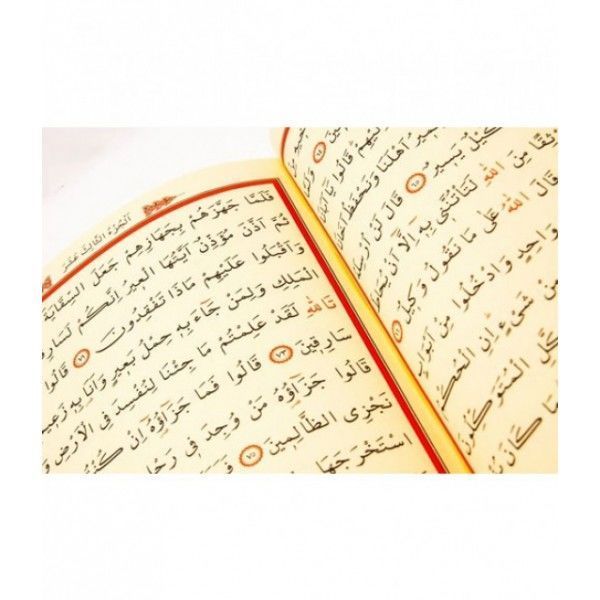 اِلَيْهِمْ قَالُوا يَا
اَهْلَنَا وَنَحْفَظُ
كَيْلٌ يَسِيرٌ ﴿٦٥﴾ قَالَ لَنْ
مِنَ اللّٰهِ لَتَأْتُنَّنِي بِهِ اِلَّا اَنْ
قَالَ اللّٰهُ عَلٰى مَا نَقُولُ وَكِيلٌ
وَاحِدٍ وَادْخُلُوا مِنْ اَبْوَابٍ
مِنْ شَيْءٍ اِنِ الْحُكْمُ
الْمُتَوَكِّلُونَ
مَا كَانَ
اَلْجُزْءُ الثَّالِثَ عَشَرَ
فَلَمَّا جَهَّزَهُمْ بِجَهَازِهِمْ جَعَلَ السِّقَايَةَ
ثُمَّ اَذَّنَ مُؤَذِّنٌ اَيَّتُهَا الْعِيرُ اِنَّكُمْ لَسَارِ
وَاَقْبَلُوا عَلَيْهِمْ مَاذَا تَفْقِدُونَ ﴿٧١﴾ قَالُوا
الْمَلِكِ وَلِمَنْ جَاءَ بِهِ حِمْلُ بَعِيرٍ وَاَنَا بِهِ زَعِيمٌ
تَاللّٰهِ لَقَدْ عَلِمْتُمْ مَا جِئْنَا لِنُفْسِدَ فِي الْاَرْضِ
سَارِقِينَ ﴿٧٣﴾ قَالُوا فَمَا جَزَاؤُهُ اِنْ كُنْتُمْ
قَالُوا جَزَاؤُهُ مَنْ وُجِدَ فِي رَحْلِهِ
نَجْزِي الظَّالِمِينَ ﴿٧٥﴾
اسْتَخْرَجَهَا